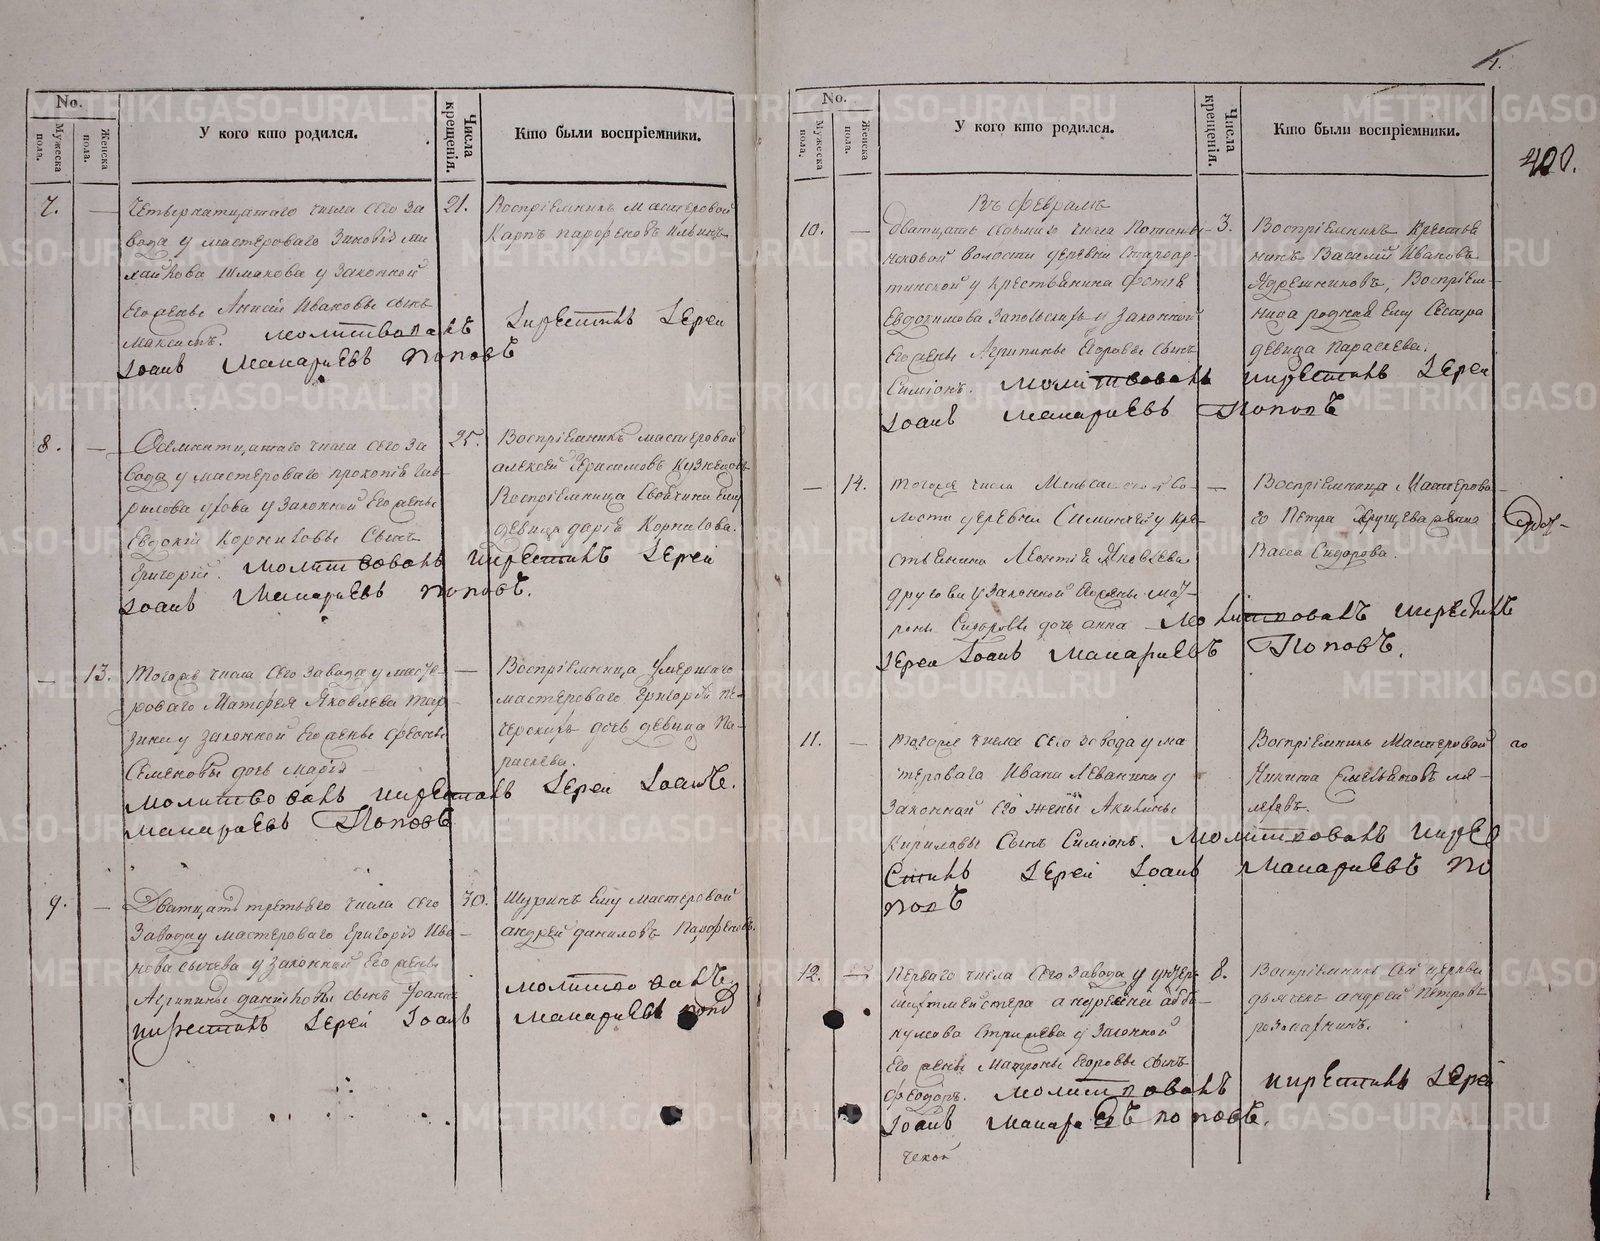 No.
Мужеска пола.
Женска пола.
У кого кто родился.
Числа крещенія.
Кто были воспріемники.
7. — Четвернатцатаго числа сего за
вода у мастероваго Зиновія Ми
хайлова Шмакова у законной
Его жены Анисіи Ивановы сынъ
Максимъ. молитвовалъ
Іоанъ Макаріевъ Поповъ
21. Воспріемникъ мастеровой
Карпъ Парфеновъ
и крестилъ Іерей
8. — Осемнатцатаго числа сего за
вода у мастероваго Прокопія Гав-
рилова у законной Его жены
Евдокіи Корниловы сынъ
Григорій. молитвовалъ
Іоанъ Макаріевъ Поповъ.
25. Воспріемникъ мастеровой
алексей Герасимовъ Кузнецовъ
Воспріемница Ему
девица дарья Корнилова.
и крестилъ Іерей
— 13. Тогожъ числа сего завода у масте-
роваго Матфея Яковлева
у законной Его жены
Семеновы дочь Марія
молитвовалъ и крестилъ Іерей Іоаннъ.
Макаріевъ Поповъ
— Воспріемница умершаго
мастероваго Григорія Пе-
дочь девица Па-
раскева.
9. — Дватцать третьяго числа сего
завода у мастероваго Григорія Ива-
нова Сычева у законной Его жены
Агрипины Даниловы сынъ Іоаннъ
и крестилъ Іерей Іоанъ
30. Шуринъ Ему мастеровой
андрей даниловъ Парфеновъ.
молитвовалъ.
Макаріевъ
No.
Мужеска пола.
Женска пола.
У кого кто родился.
Числа крещенія.
Кто были воспріемники.
400.
Въ февралѣ
10. — Дватцать седьмаго числа
волости деревни Староар-
тинской у крестьянина Фотія
Евдокимова у законной
Его жены Агрипины Егоровы сынъ
Симіонъ. молитвовалъ
Іоанъ Макаріевъ Поповъ
3. Воспріемникъ Крестья
нинъ Василій Ивановъ
Ядрешниковъ, Воспріем-
ница родная Ему сестра
девица Параскева.
и крестилъ Іерей
— 14. Тогоже числа во-
лости деревни у кре-
стьянина Леонтія Яковлева
у законной Его жены Мат-
роны Сидоровы дочь анна молитвовалъ и крестилъ
Іерей Іоанъ Макаріевъ Поповъ.
— Воспріемница Мастерова-
го Петра жена
Васса Сидорова.
11. — Тогоже числа сего завода у ма
тероваго Ивана Леванина у
законной его жены Акилины
Кириловы сынъ Симіонъ. молитвовалъ и кре
стилъ Іерей Іоанъ Макаріевъ По
повъ
Воспріемникъ Мастеровой
Никита Емельяновъ
12. — Перваго числа сего завода у унтеръ
шихтмейстера
у законной
Его жены Матроны Егоровы сынъ
Феодоръ. молитвовалъ и крестилъ Іерей
Іоанъ Макаріевъ Поповъ.
8. Воспріемникъ сей церкви
дьячекъ андрей Петровъ